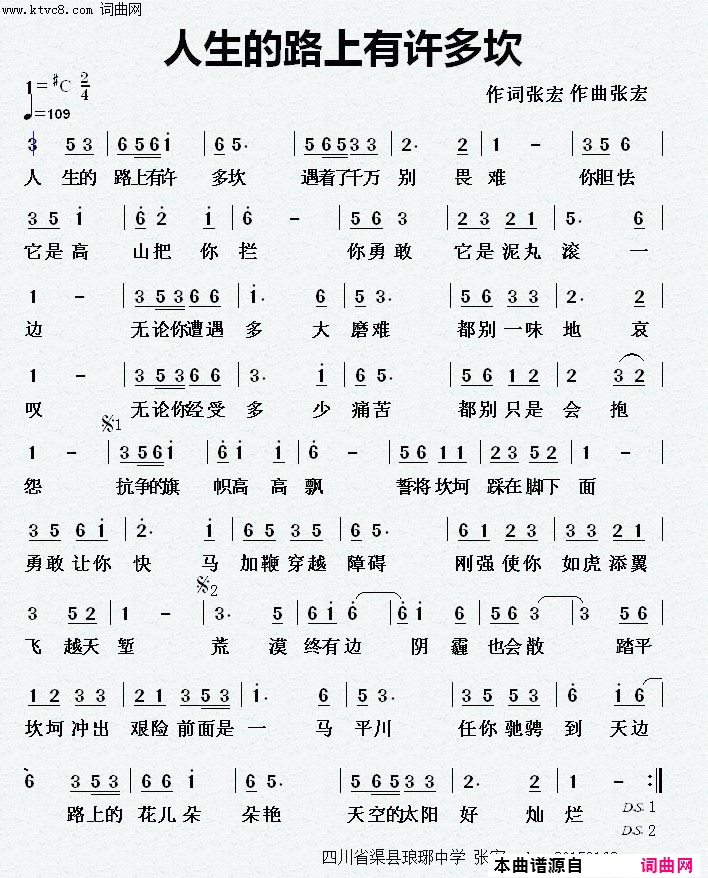 www.ktvc8.com 词曲网
人生的路上有许多坎
1=#C 2/4
♩=109
作词张宏 作曲张宏
3 5 3 | 6 5 6 1 | 6 5. | 5 6 5 3 3 | 2. 2 | 1 - | 3 5 6 |
人 生的 路上有许 多坎 遇着了千万 别 畏 难 你胆怯
3 5 1 | 6 2 1 | 6 - | 5 6 3 | 2 3 2 1 | 5. 6 |
它是高 山把 你 拦 你勇敢 它是泥丸 滚 一
1 - | 3 5 3 6 6 | 1. 6 | 5 3. | 5 6 3 3 | 2. 2 |
边 无论你遭遇 多 大 磨难 都别一味 地 哀
1 - | 3 5 3 6 6 | 3. 1 | 6 5. | 5 6 1 2 | 2 3 2 |
叹 无论你经受 多 少 痛苦 都别只是 会 抱
𝄋1
1 - | 3 5 6 1 | 6 1 1 | 6 - | 5 6 1 1 | 2 3 5 2 | 1 - |
怨 抗争的旗 帜高 高 飘 誓将坎坷 踩在脚下 面
3 5 6 1 | 2. 1 | 6 5 3 5 | 6 5. | 6 1 2 3 | 3 3 2 1 |
勇敢让你 快 马 加鞭穿越 障碍 刚强使你 如虎添翼
𝄋2
3 5 2 | 1 - | 3. 5 | 6 1 6 | 6 1 6 | 5 6 3 | 3 5 6 |
飞 越天 堑 荒 漠 终有边 阴 霾 也会散 踏平
1 2 3 3 | 2 1 3 5 3 | 1. 6 | 5 3. | 5 5 5 3 | 6 1 6 |
坎坷冲出 艰险前面是 一 马 平川 任你驰骋 到 天边
6 3 5 3 | 6 6 1 | 6 5. | 3 5 6 5 3 3 | 2. 2 | 1 - :|
路上的 花儿朵 朵艳 天空的太阳 好 灿 烂
D.S. 1
D.S. 2
四川省渠县琅琊中学 张宏
本曲谱源自 词曲网